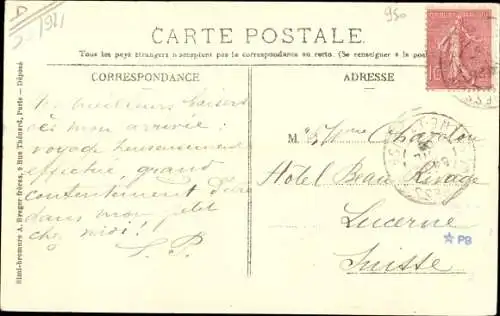 950
1911
CARTE POSTALE
Tous les pays étrangers n'acceptent pas la correspondance au recto. (Se renseigner à la poste)
CORRESPONDANCE
ADRESSE
Simi-bromure A. Breger frères, 9 Rue Thénard, Paris — Déposé
meilleurs baisers
dès mon arrivée:
voyage heureusement
effectué, grand
contentement d'être
dans mon petit
chez moi!
S. P.
M
Hôtel Beau Rivage
Lucerne
Suisse
PB